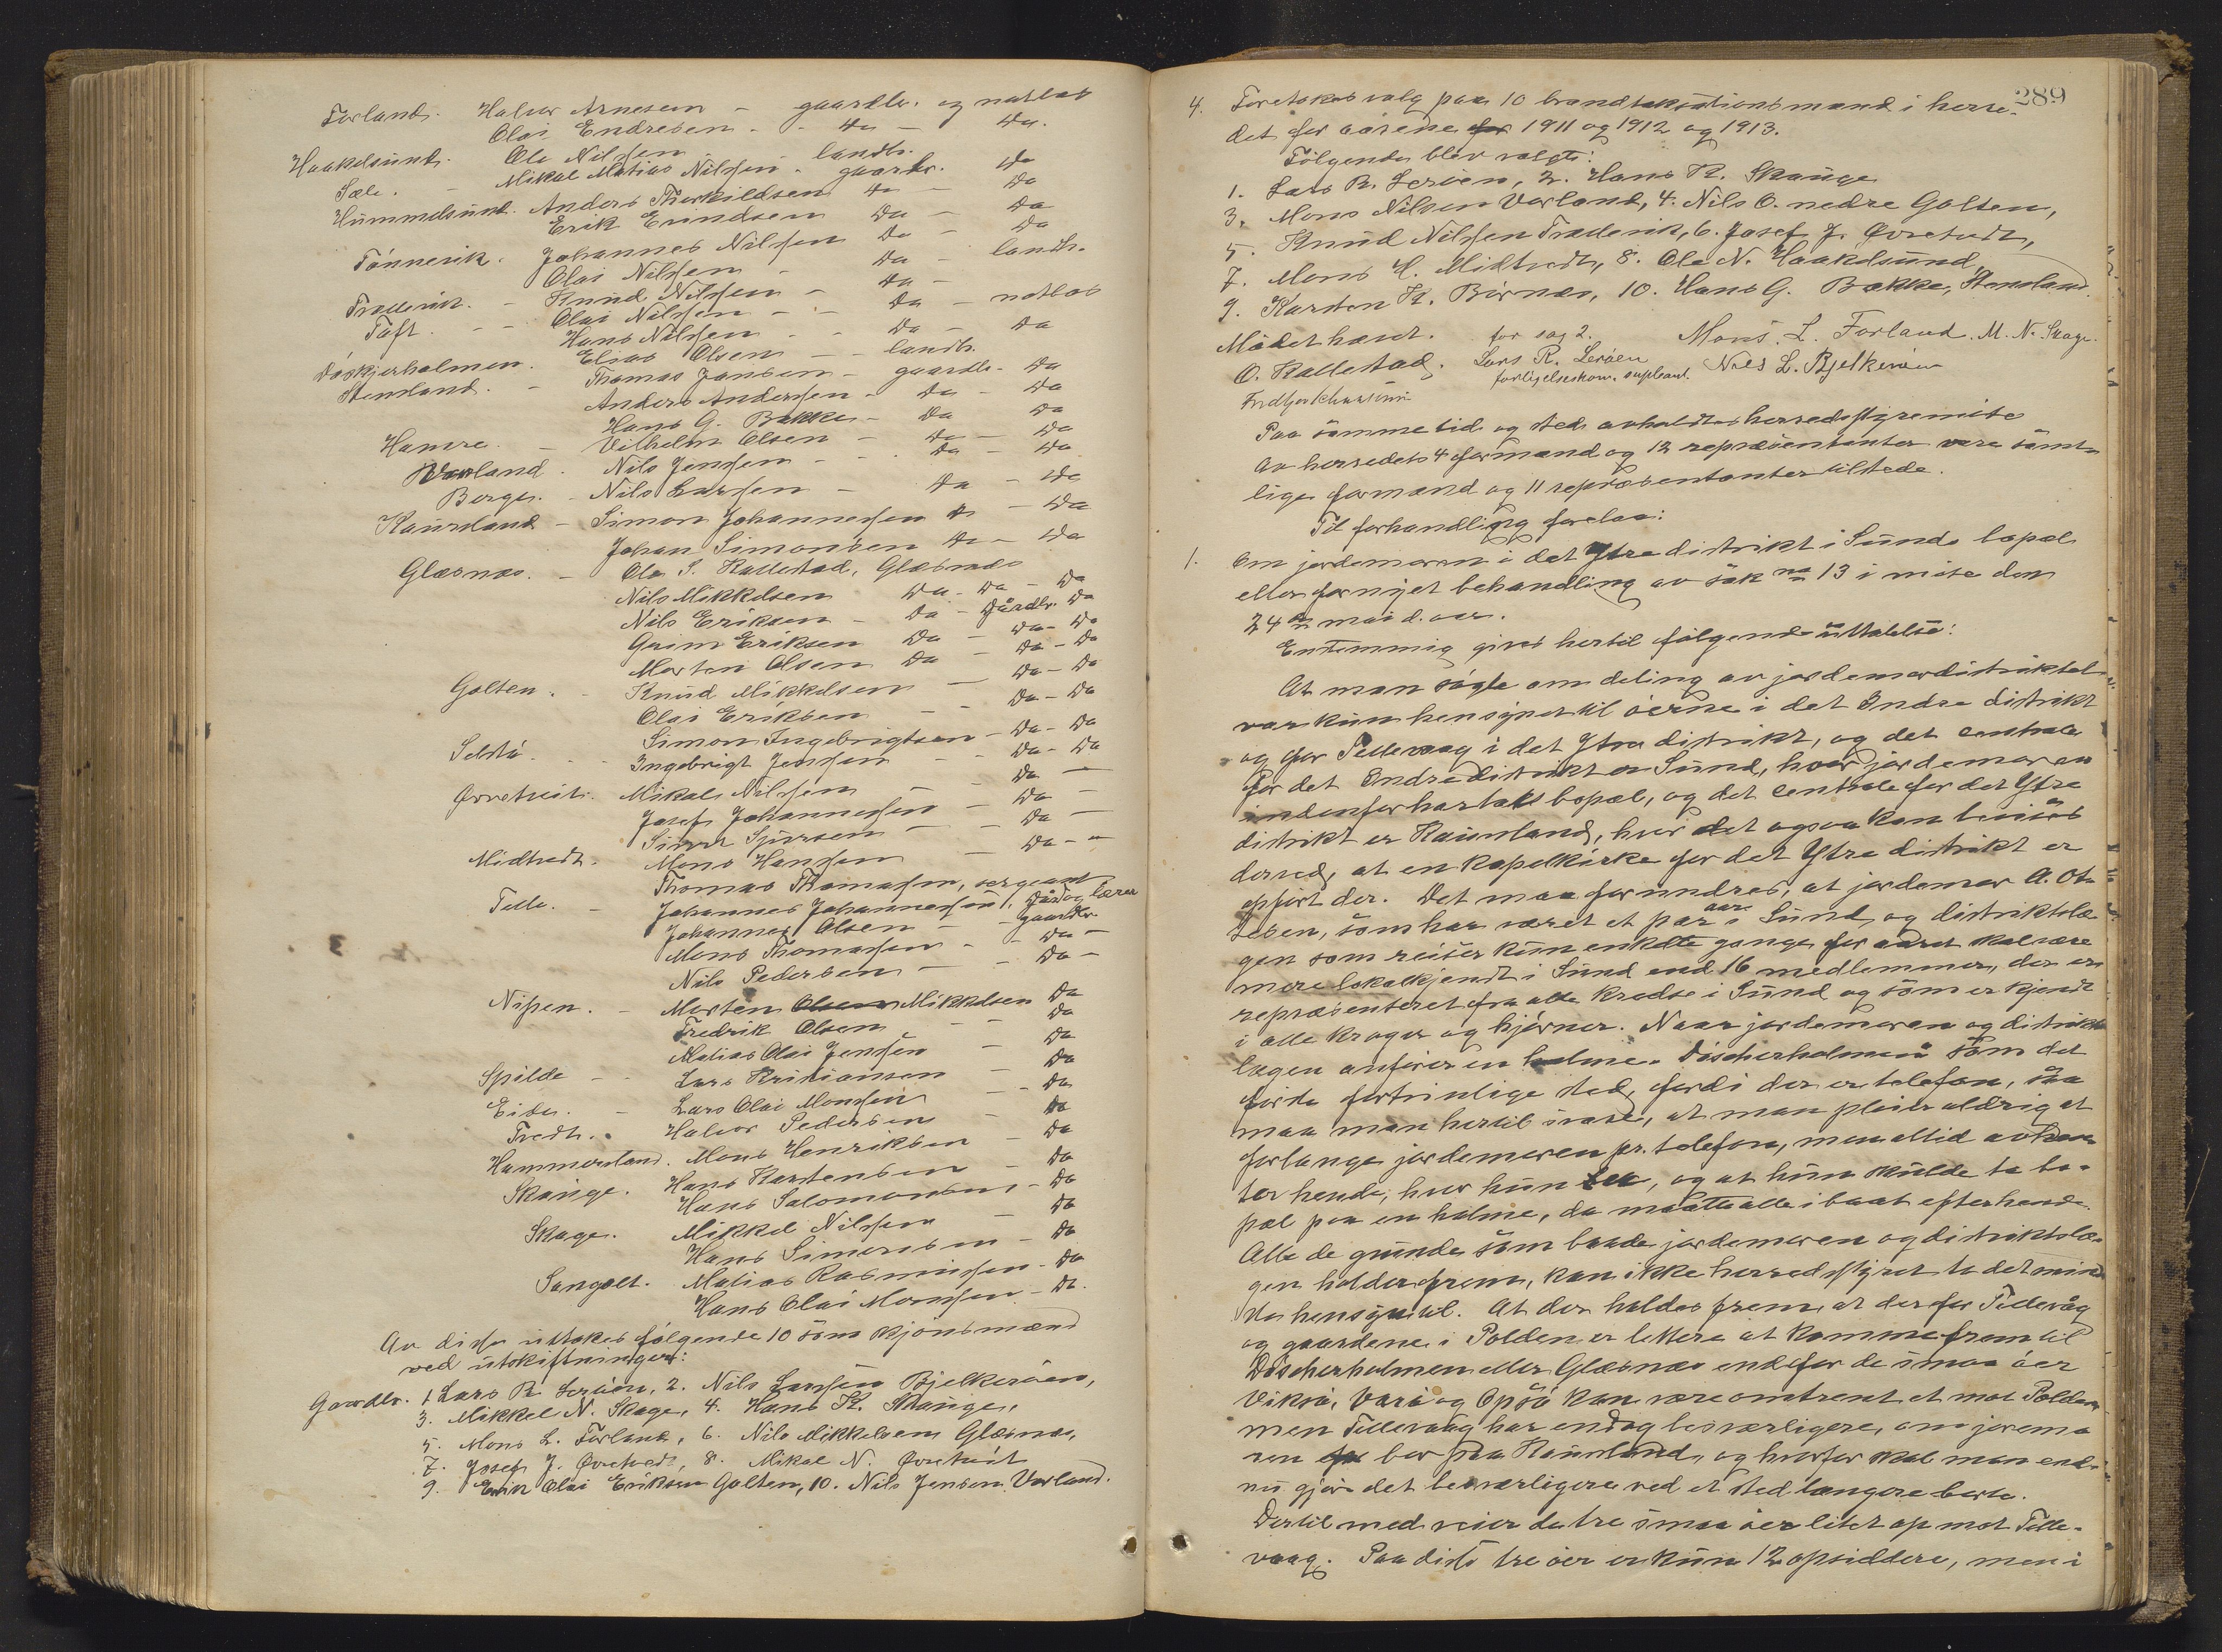 Forland. Halvor Arnesen - gaardbr. og notbas
Olai Endresen - Do - Do.
Haakelsund. Ole Nilssen - landh.
Sæle. - Mikal Matias Nilssen - gaardbr. Do
Hummelsund. Anders Therkildsen Do - Do
Erik Erindsen Do - Do
Tönnevik. Johannes Nilssen Do - Do
Olai Nilssen - Do - landh.
Trællevik. - Knud Nilssen - Do -
Toft. - - Olai Nilssen - - Do - notbas
Hans Nilssen - Do - Do
Döskjerholmen. Elias Olsen - - landh.
Stensland. - Thomas Jansen - gaardbr. Do
Anders Anderssen - Do - Do
Hans G. Bakke - Do Do
Hamre. - Vilhelm Olsen - Do - Do
Vorland. Nils Jenssen - - Do - Do
Berge. - Nils Larssen - Do - Do
Kausland - Simon Johannessen Do - Do
Johan Simonsen Do - Do
Glæsnæs. - Ole S. Kallestad, Glæsnæs
Nils Mikkelsen Do - Do - Do
Nils Eriksen - Do - Gårdbr. Do
Grim Eriksen Do - Do - Do
Morten Olsen Do - Do - Do
Golten. - Knud Mikkelsen - Do - Do
Olai Eriksen - - Do - Do
Simon Ingebrigtsen - Do - Do
Selstö. - - Ingebrigt Jenssen - - Do - Do
Övretveit. Mikal Nilssen - - Do -
Josef Johannessen - Do -
Simon Sjursen - - Do -
Midttvedt. Mons Hanssen - Do - -
Thomas Thomassen, sergeant
Telle. - Johannes Johannessen, Gård og lærer
Johannes Olsen - - gaardbr.
Mons Thomassen - - Do -
Nils Pedersen - - Do -
Nipen. - Morten Olsen Mikkelsen Do
Fredrik Olsen - - Do
Matias Olai Jenssen - Do
Spilde - - Lars Kristiansen - Do
Eide. - Lars Olai Monssen - - Do
Tvedt. - Halvor Pedersen - Do
Hammersland. Mons Henriksen - Do
Skauge. Hans Karstensen - Do
Hans Salomonsen - Do
Skage. Mikkel Nilssen - Do
Hans Simonsen - Do
Sangolt. Matias Rasmussen - Do
Hans Olai Monssen - Do.
Av disse uttakes følgende 10 som skjönsmænd
ved utskiftninger:
Gaardbr. 1 Lars R. Leröen, 2. Nils Larssen Bjelkeröen,
3. Mikkel N. Skage, 4. Hans K. Skauge,
5. Mons L. Forland, 6. Nils Mikkelsen Glæsnæs,
7. Josef J. Övretvedt, 8. Mikal N. Övretveit
9. Erik Olai Eriksen Golten, 10. Nils Jensen Vorland.
289
4. Foretokes valg paa 10 brandtakstionsmænd i herre-
det for aarene for 1911 og 1912 og 1913.
Følgende blev valgte:
1. Lars R. Leröen, 2. Hans K. Skauge
3. Mons Nilsen Vorland, 4. Nils O. nedre Golten,
5. Knud Nilssen Trællevik, 6. Josef J. Övretvedt,
7. Mons H. Midttvedt, 8. Ole N. Haakelsund,
9. Karsten K. Börnæs, 10. Hans G. Bakke, Stensland
Mødet hævet. for sag 2. Mons. L. Forland. M. N. Skage.
O. Kallestad. Lars R. Leröen Nils L. Bjelkeröen
forligelseskom. supleant.
Paa samme tid og sted avholdtes herredsstyremöte
Av herredets 4 formænd og 12 repræsentanter vare samt-
lige formænd og 11 repræsentanter tilstede.
Til forhandling forelaa:
1. Om jordemoren i det Ytre distrikt i Sunds bopæl
eller fornyet behandling av sak no 13 i möte den
24de mai d. aar.
Enstemmig gives hertil følgende uttalelse:
At man sögte om deling av jordemordistriktet
var kun hensynet til öerne i det Indre distrikt
og for Tellevaag i det Ytre distrikt, og det centrale
for det Indre distrikt er Sund, hvor jordemoren
indenfor har tatt bopæl, og det centrale for det Ytre
distrikt er Kausland, hvor det ogsaa kan bevises
derved, at en kapelkirke for det Ytre distrikt er
opfört der. Det maa forundres, at jordemor A. Ot-
tesen, som har været et par aar i Sund, og distriktslæ-
gen som reiser kun enkelte gange for aaret skal være
mere lokalkjendt i Sund end 16 medlemmer, der er
repræsenteret fra alle kredse i Sund og som er kjendt
i alle kroger og hjörner. Naar jordemoren og distrikts
lægen anförer en holme. Döskerholmen som det
förste fortrinlige sted, fordi der er telefon, saa
maa man hertil svare, at man pleier aldrig at
forlange jordemoren pr. telefon, men altid avhen-
ter hende, hvor hun er, og at hun skulde ta bo-
pæl paa en holme, da maatte alle i baat efter hende.
Alle de grunde som baade jordemoren og distriktslæ-
gen holder frem, kan ikke herredsstyret ta det mind
ste hensyn til. At der holdes frem at der for Tellevåg
og gaardene i Polden er lettere at komme frem til
Döscherholmen eller Glæsnæs end for de smaa öer
Viksö, Varö og Opsö kan være omtrent et mot Polden
men Tellevaag har endog besværligere, om jorremo
ren for bor paa Kausland, og hvorfor skal man end
nu gjöre det besværligere ved et sted længere borte.
Dertil med veier de tre smaa öer litet op mot Telle-
vaag. Paa disse tre öer er kun 12 opsiddere, men i